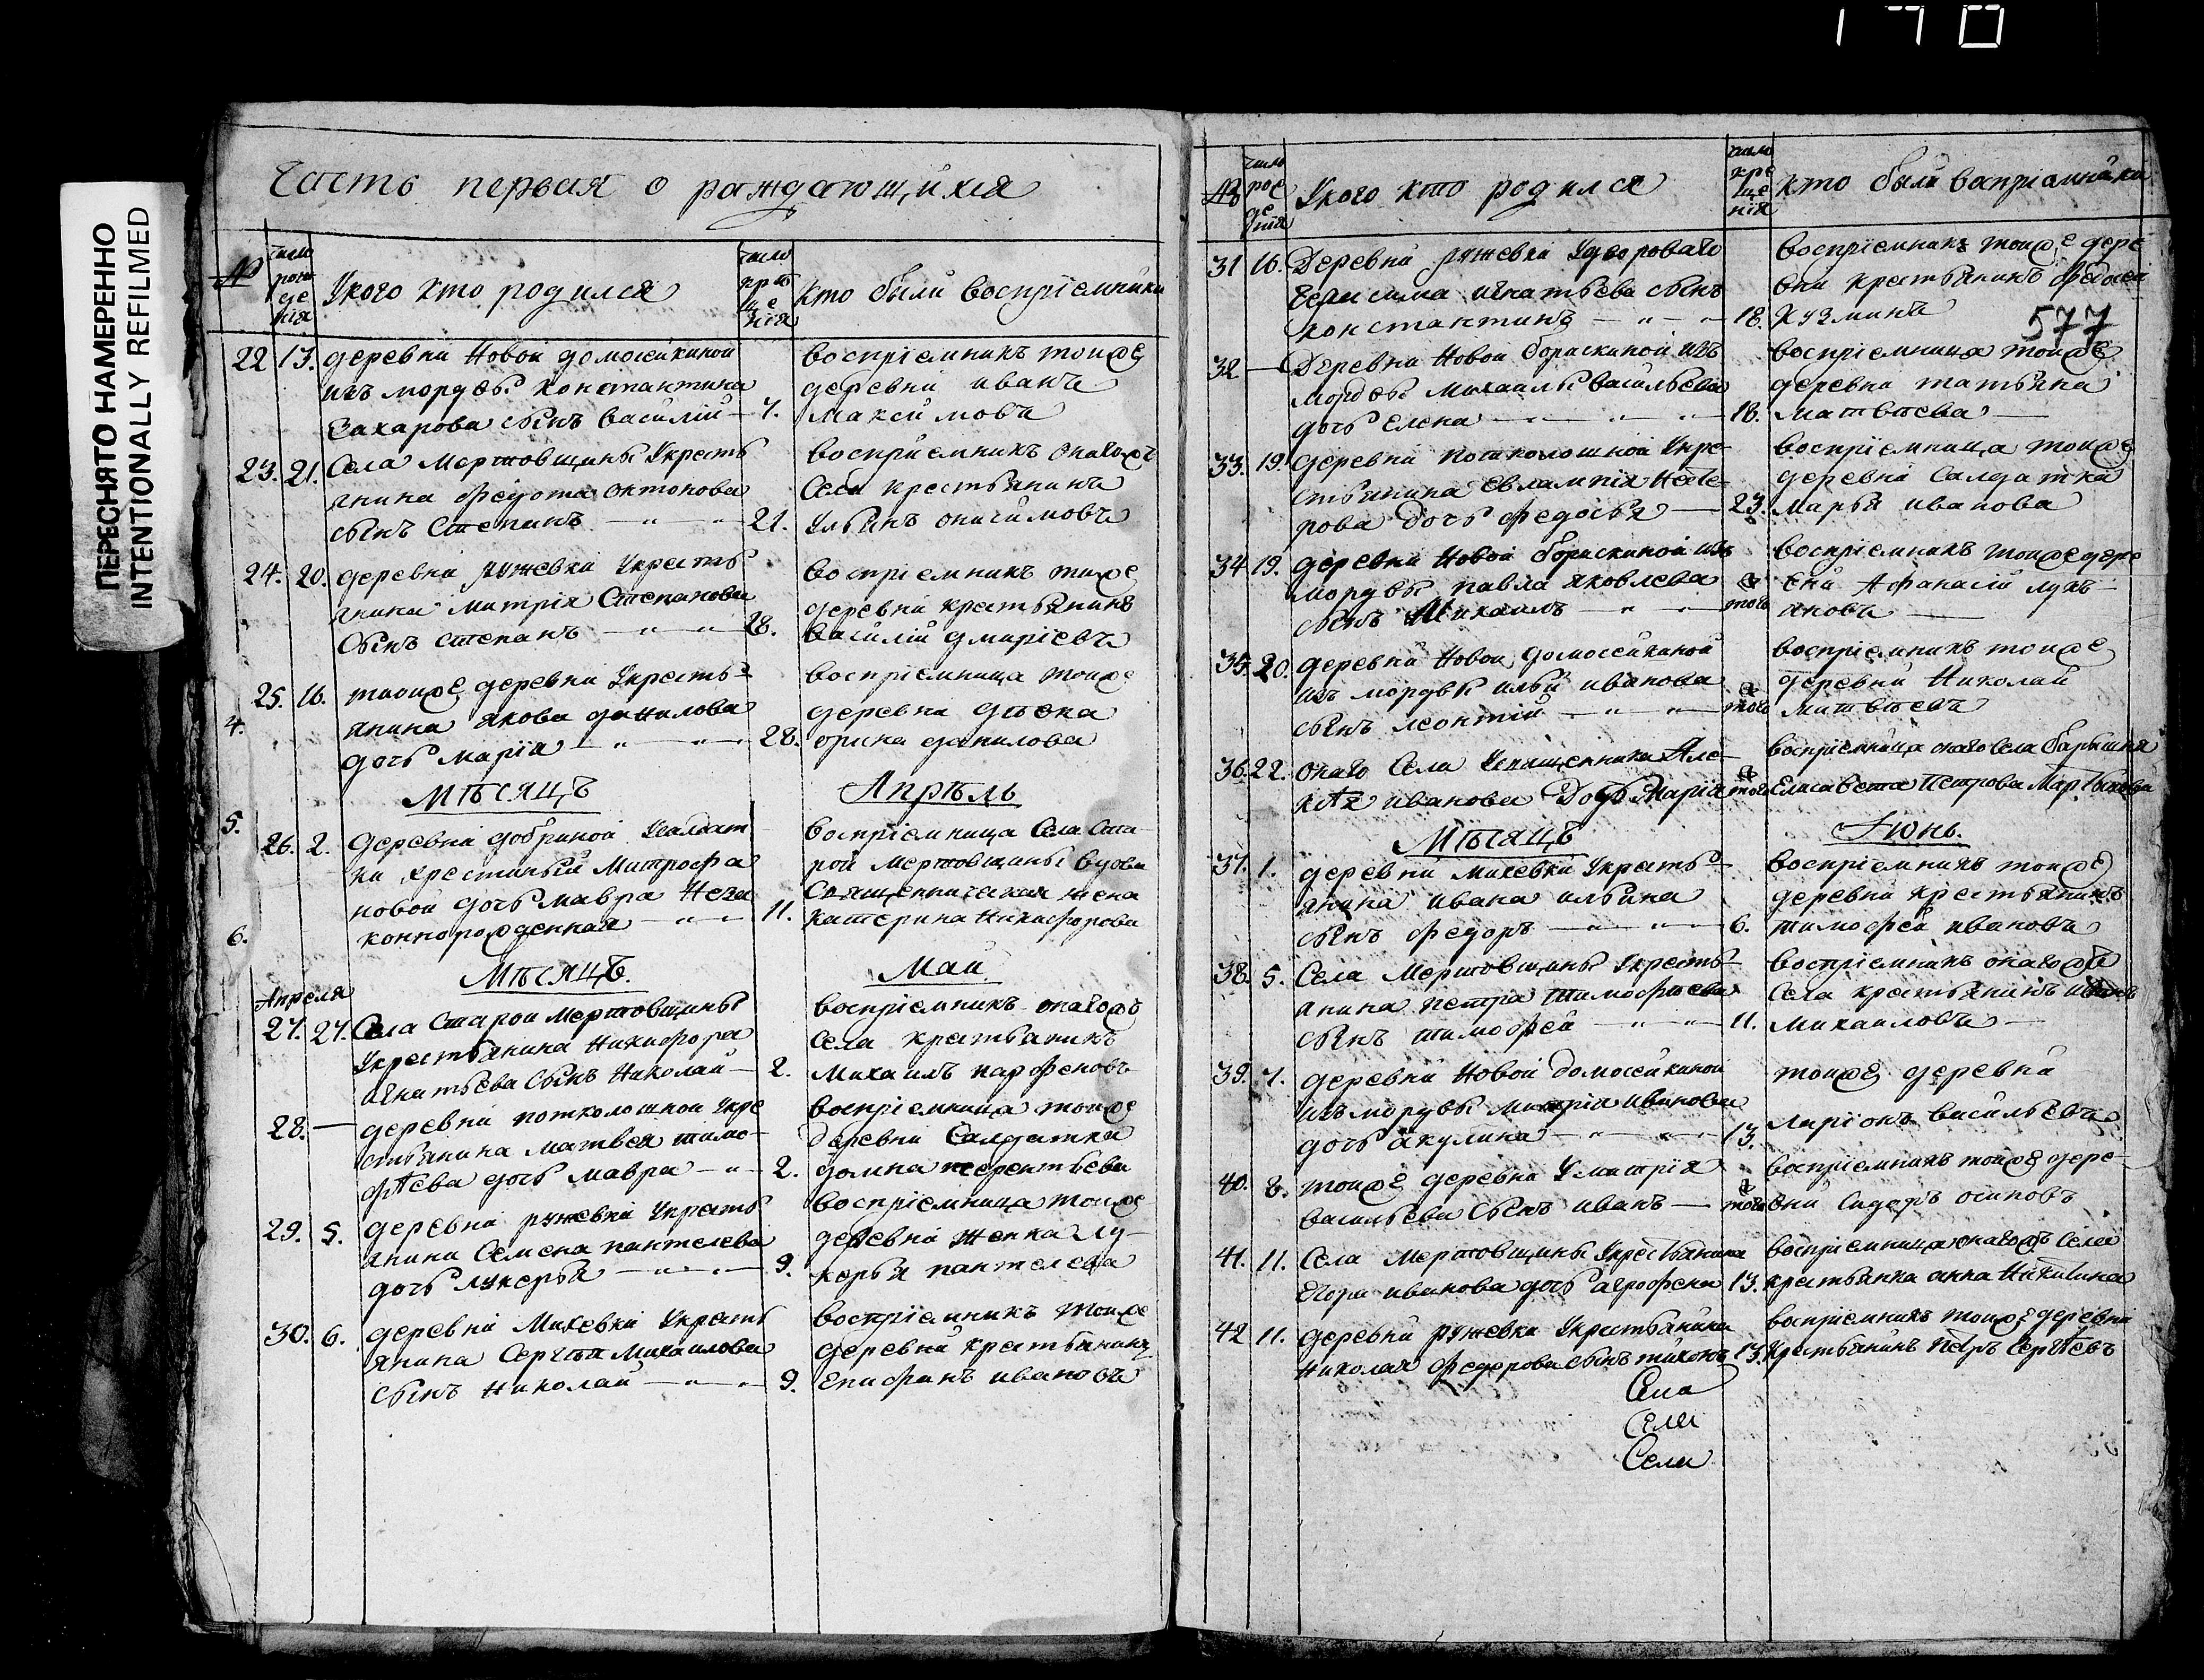 170
ПЕРЕСНЯТО НАМЕРЕННО
INTENTIONALLY REFILMED
Часть первая о раждающихся
№
число рож де нія
У кого кто родился
число кръ ще нія
Кто были воспріемники
22 13. деревни Новой домосейкиной
изъ мордвы константина
Захарова сынъ Василій — 7.
воспріемникъ тойже
деревни иванъ
Максимовъ
23. 21. Села Мертовщины Укресть
янина федота антонова
сынъ Степанъ — " — " — 21.
воспріемникъ онагожъ
Села крестьянинъ
Ульянъ
24. 20. деревни ружевки Укресть
янина митрія Степанова
сынъ степанъ — " — " — 28.
воспріемникъ тойже
деревни крестьянинъ
василій дмитріевъ
25. 16. тойже деревни Укресть-
янина якова данилова
дочь марія — " — " — 28.
воспріемница тойже
деревни дѣвка
орина данилова
Мѣсяцъ Апрѣль
4.
5.
6.
26. 2. деревни добриной Усалдат
ки крестиньи Митрофа
новой дочь мавра Неза
коннорожденная " — 11.
воспріемница Села Ста
рой мертовщины вдова
Священническая жена
катерина Никифорова
Мѣсяцъ. Май.
Апреля
27. 27. Села Старой мертовщины
Укрестьянина Никифора
игнатьева сынъ Николай — 2.
воспріемникъ онагожъ
Села крестьянинъ
Михаилъ парфеновъ
28. — деревни потколошной Укре
стьянина матвея тимо-
фѣева дочь мавра — " — 2.
воспріемница тойже
деревни Салдатка
домна терентьева
29. 5. деревни ружевки Укресть
янина Семена пантелева
дочь лукерья — " — " — 9.
воспріемница тойже
деревни женка лу-
керья пантелева
30. 6. деревни Михевки Укресть
янина Сергѣя михайлова
сынъ Николай — " — " — 9.
воспріемникъ тойже
деревни крестьянинъ
Епифанъ ивановъ
№
число рож де нія
У кого кто родился
число кре ще нія
кто были воспріемники
577
31 16. Деревни ружевки Удвороваго
Герасима игнатьева сынъ
константинъ — " — " — 18.
воспріемникъ тойже дере
вни крестьянинъ
Кузминъ
32 — Деревни Новой борискиной изъ
мордвы михаилы васильева
дочь Елена — " — " — 18.
воспріемница тойже
деревни татьяна
матвѣева —
33. 19. деревни потколошной Укре-
стьянина Евлампія Несте-
рова дочь федосья — 23.
воспріемница тойже
деревни Салдатка
марья иванова
34 19. деревни Новой борискиной изъ
мордвы павла яковлева
сынъ Михаилъ — " — " — того
воспріемникъ тойже дере
вни Афанасій лукь-
яновъ —
35. 20. деревни Новой домосейкиной
изъ мордвы ильи иванова
сынъ леонтій — " — " — того
воспріемникъ тойже
деревни Николай
матвѣевъ
36. 22. онаго Села Усвященника Але-
ксѣя иванова Дочь Марія того
воспріемница онаго Села барышня
Елисавета Петрова
Мѣсяцъ Іюнь.
37. 1. деревни михевки Укресть-
янина ивана ильина
сынъ федоръ — " — " — 6.
воспріемникъ тойже
деревни крестьянинъ
тимофей ивановъ
38. 5. Села Мертовщины Укресть-
янина петра тимофѣева
сынъ тимофей — " — " — 11.
воспріемникъ онагожъ
Села крестьянинъ иванъ
михаиловъ —
39. 7. деревни Новой домосейкиной
изъ мордвы митрія иванова
дочь акулина — " — " — 13.
тойже деревни
ларіонъ васильевъ
40. 8. тойже деревни Умитрія
васильева сынъ иванъ — того
воспріемникъ тойже дере-
вни сидоръ осиповъ
41. 11. Села Мертовщины Укрестьянина
Егора иванова дочь агрофена 13.
воспріемница онагожъ Села
крестьянка анна Никитина
42 11. деревни ружевки Укрестьянина
николая федорова сынъ тихонъ 13.
воспріемникъ тойже деревни
Крестьянинъ Петръ Сергѣевъ
Села
Села
Села